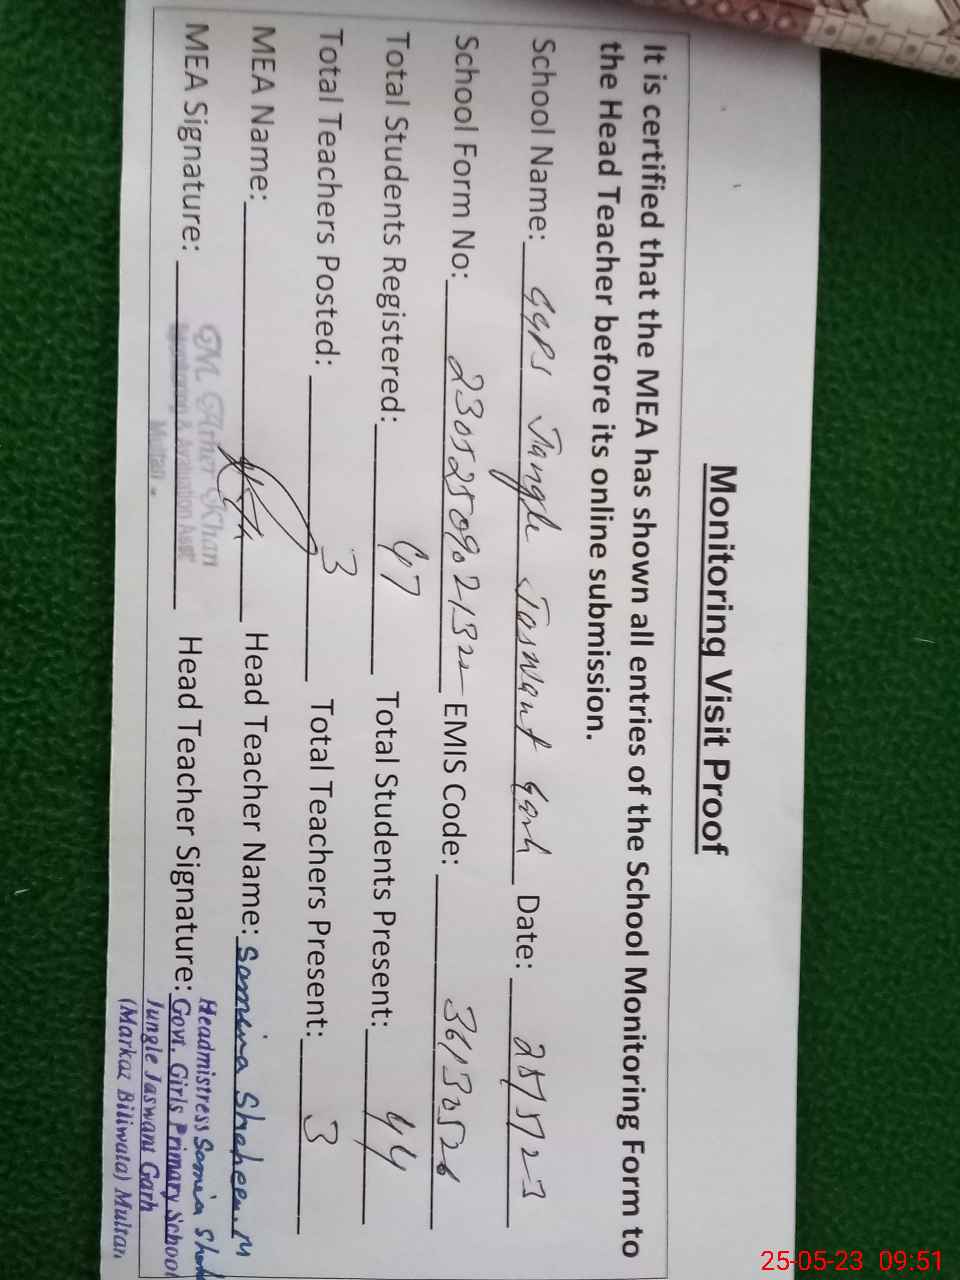 Monitoring Visit Proof
It is certified that the MEA has shown all entries of the School Monitoring Form to
the Head Teacher before its online submission.
School Name: GGPS Jangle Jaswant Garh Date: 25/5/23
School Form No: EMIS Code: 36130526
Total Students Registered: 47 Total Students Present: 44
Total Teachers Posted: 3 Total Teachers Present: 3
MEA Name: Head Teacher Name: Samina Shaheen. M
MEA Signature: Head Teacher Signature:
Khan
Monitoring & Evaluation Asstt
Multan
Headmistress
Govt. Girls Primary School
Jungle Jaswant Garh
(Markaz Biliwala) Multan
25-05-23 09:51